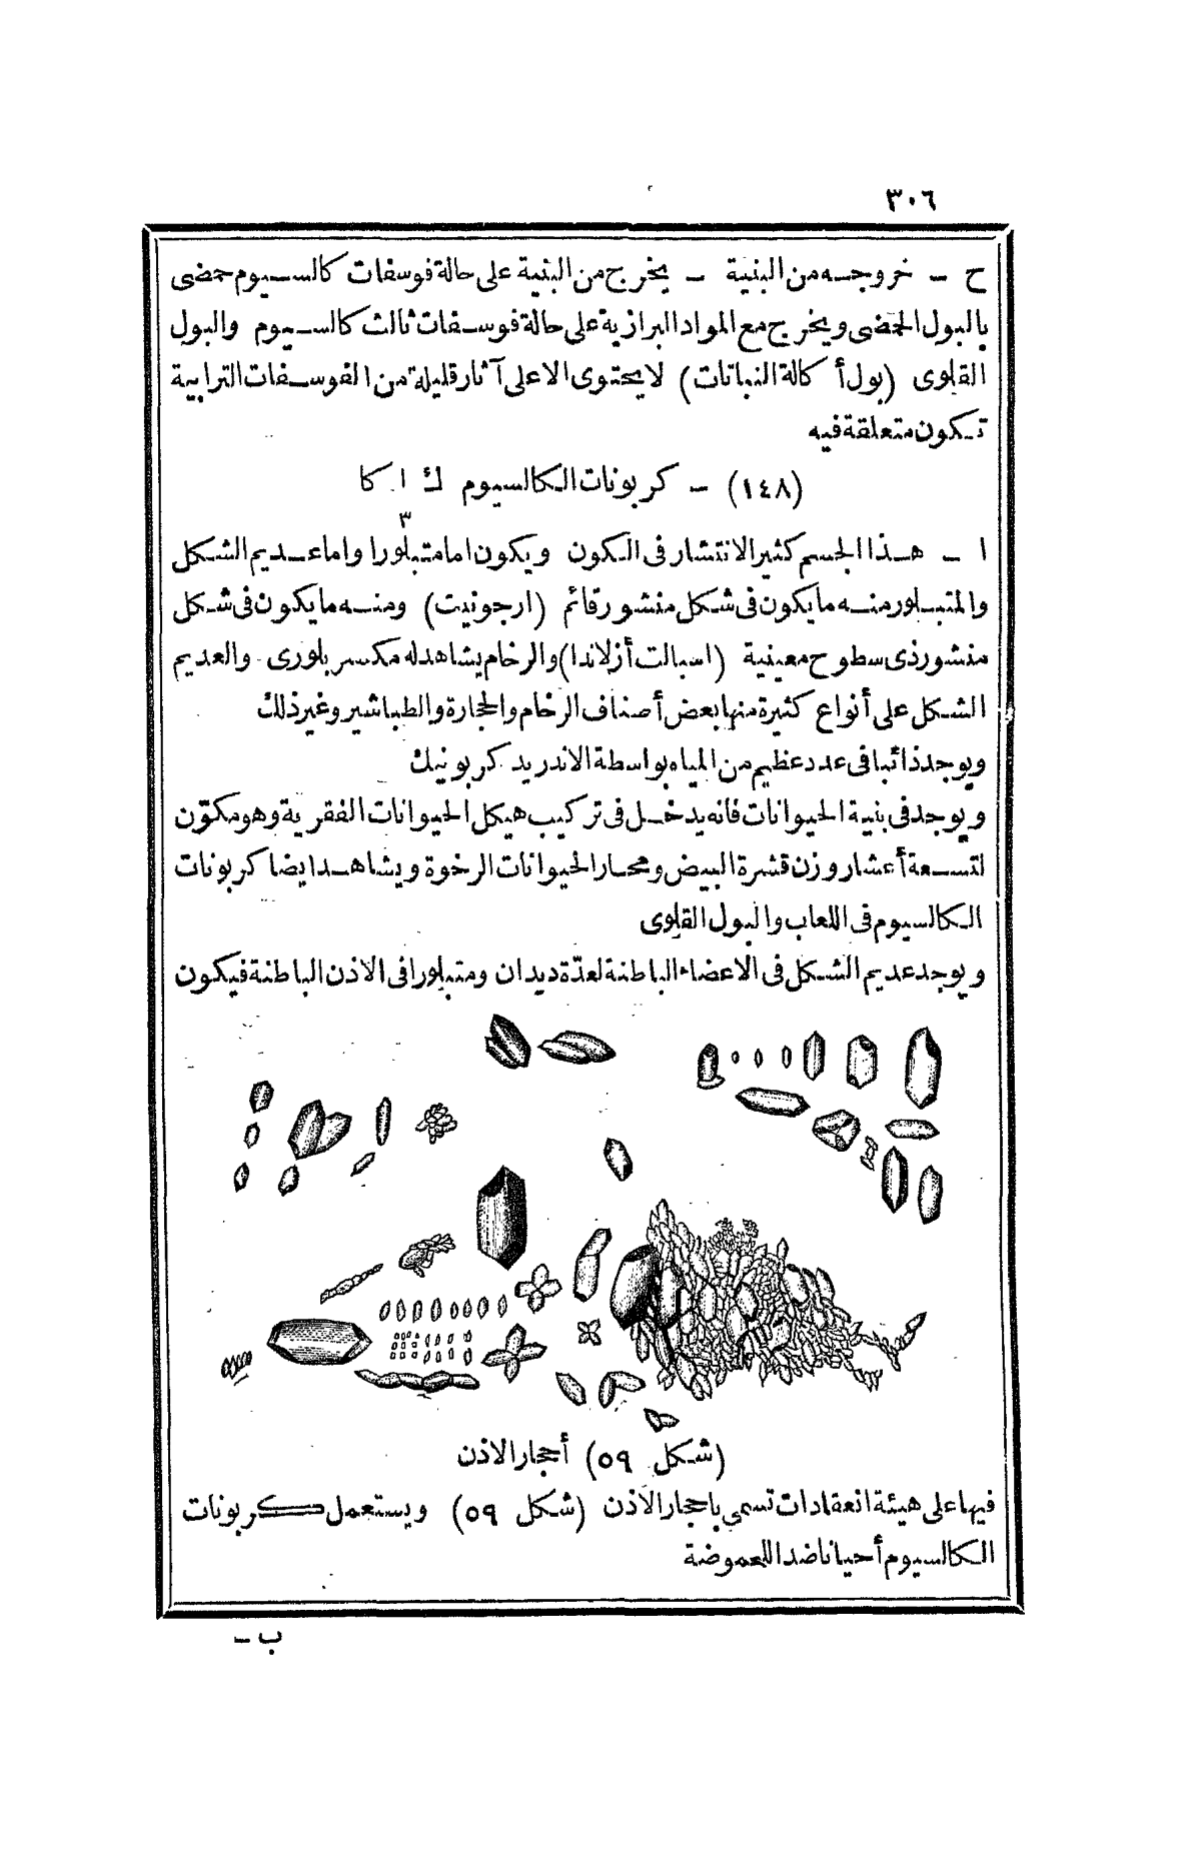 ٣٠٦
ح - خروجه من البنية - يخرج من البنية على حالة فوسفات كالسيوم حمضى
بالبول الحمضى ويخرج مع المواد البرازية على حالة فوسفات ثالث كالسيوم والبول
القلوى (بول أكالة النباتات) لا يحتوى الا على آثار قليلة من الفوسفات الترابية
تكون متعلقة فيه
(١٤٨) - كربونات الكالسيوم ك ا كا
٣
ا - هذا الجسم كثير الانتشار فى الكون ويكون اما متبلورا واما عديم الشكل
والمتبلور منه ما يكون فى شكل منشور قائم (ارجونيت) ومنه ما يكون فى شكل
منشور ذى سطوح معينية (اسبالت أزلاندا) والرخام يشاهد له مكسر بلورى والعديم
الشكل على أنواع كثيرة منها بعض أصناف الرخام والحجارة والطباشير وغير ذلك
ويوجد ذائبا فى عدد عظيم من المياه بواسطة الاندريد كربونيك
ويوجد فى بنية الحيوانات فانه يدخل فى تركيب هيكل الحيوانات الفقرية وهو مكوّن
لتسعة أعشار وزن قشرة البيض ومحار الحيوانات الرخوة ويشاهد ايضا كربونات
الكالسيوم فى اللعاب والبول القلوى
ويوجد عديم الشكل فى الاعضاء الباطنة لعدّة ديدان ومتبلورا فى الاذن الباطنة فيكون
(شكل ٥٩) أحجار الاذن
فيها على هيئة انعقادات تسمى باحجار الاذن (شكل ٥٩) ويستعمل كربونات
الكالسيوم أحيانا ضدا للحموضة
ب -